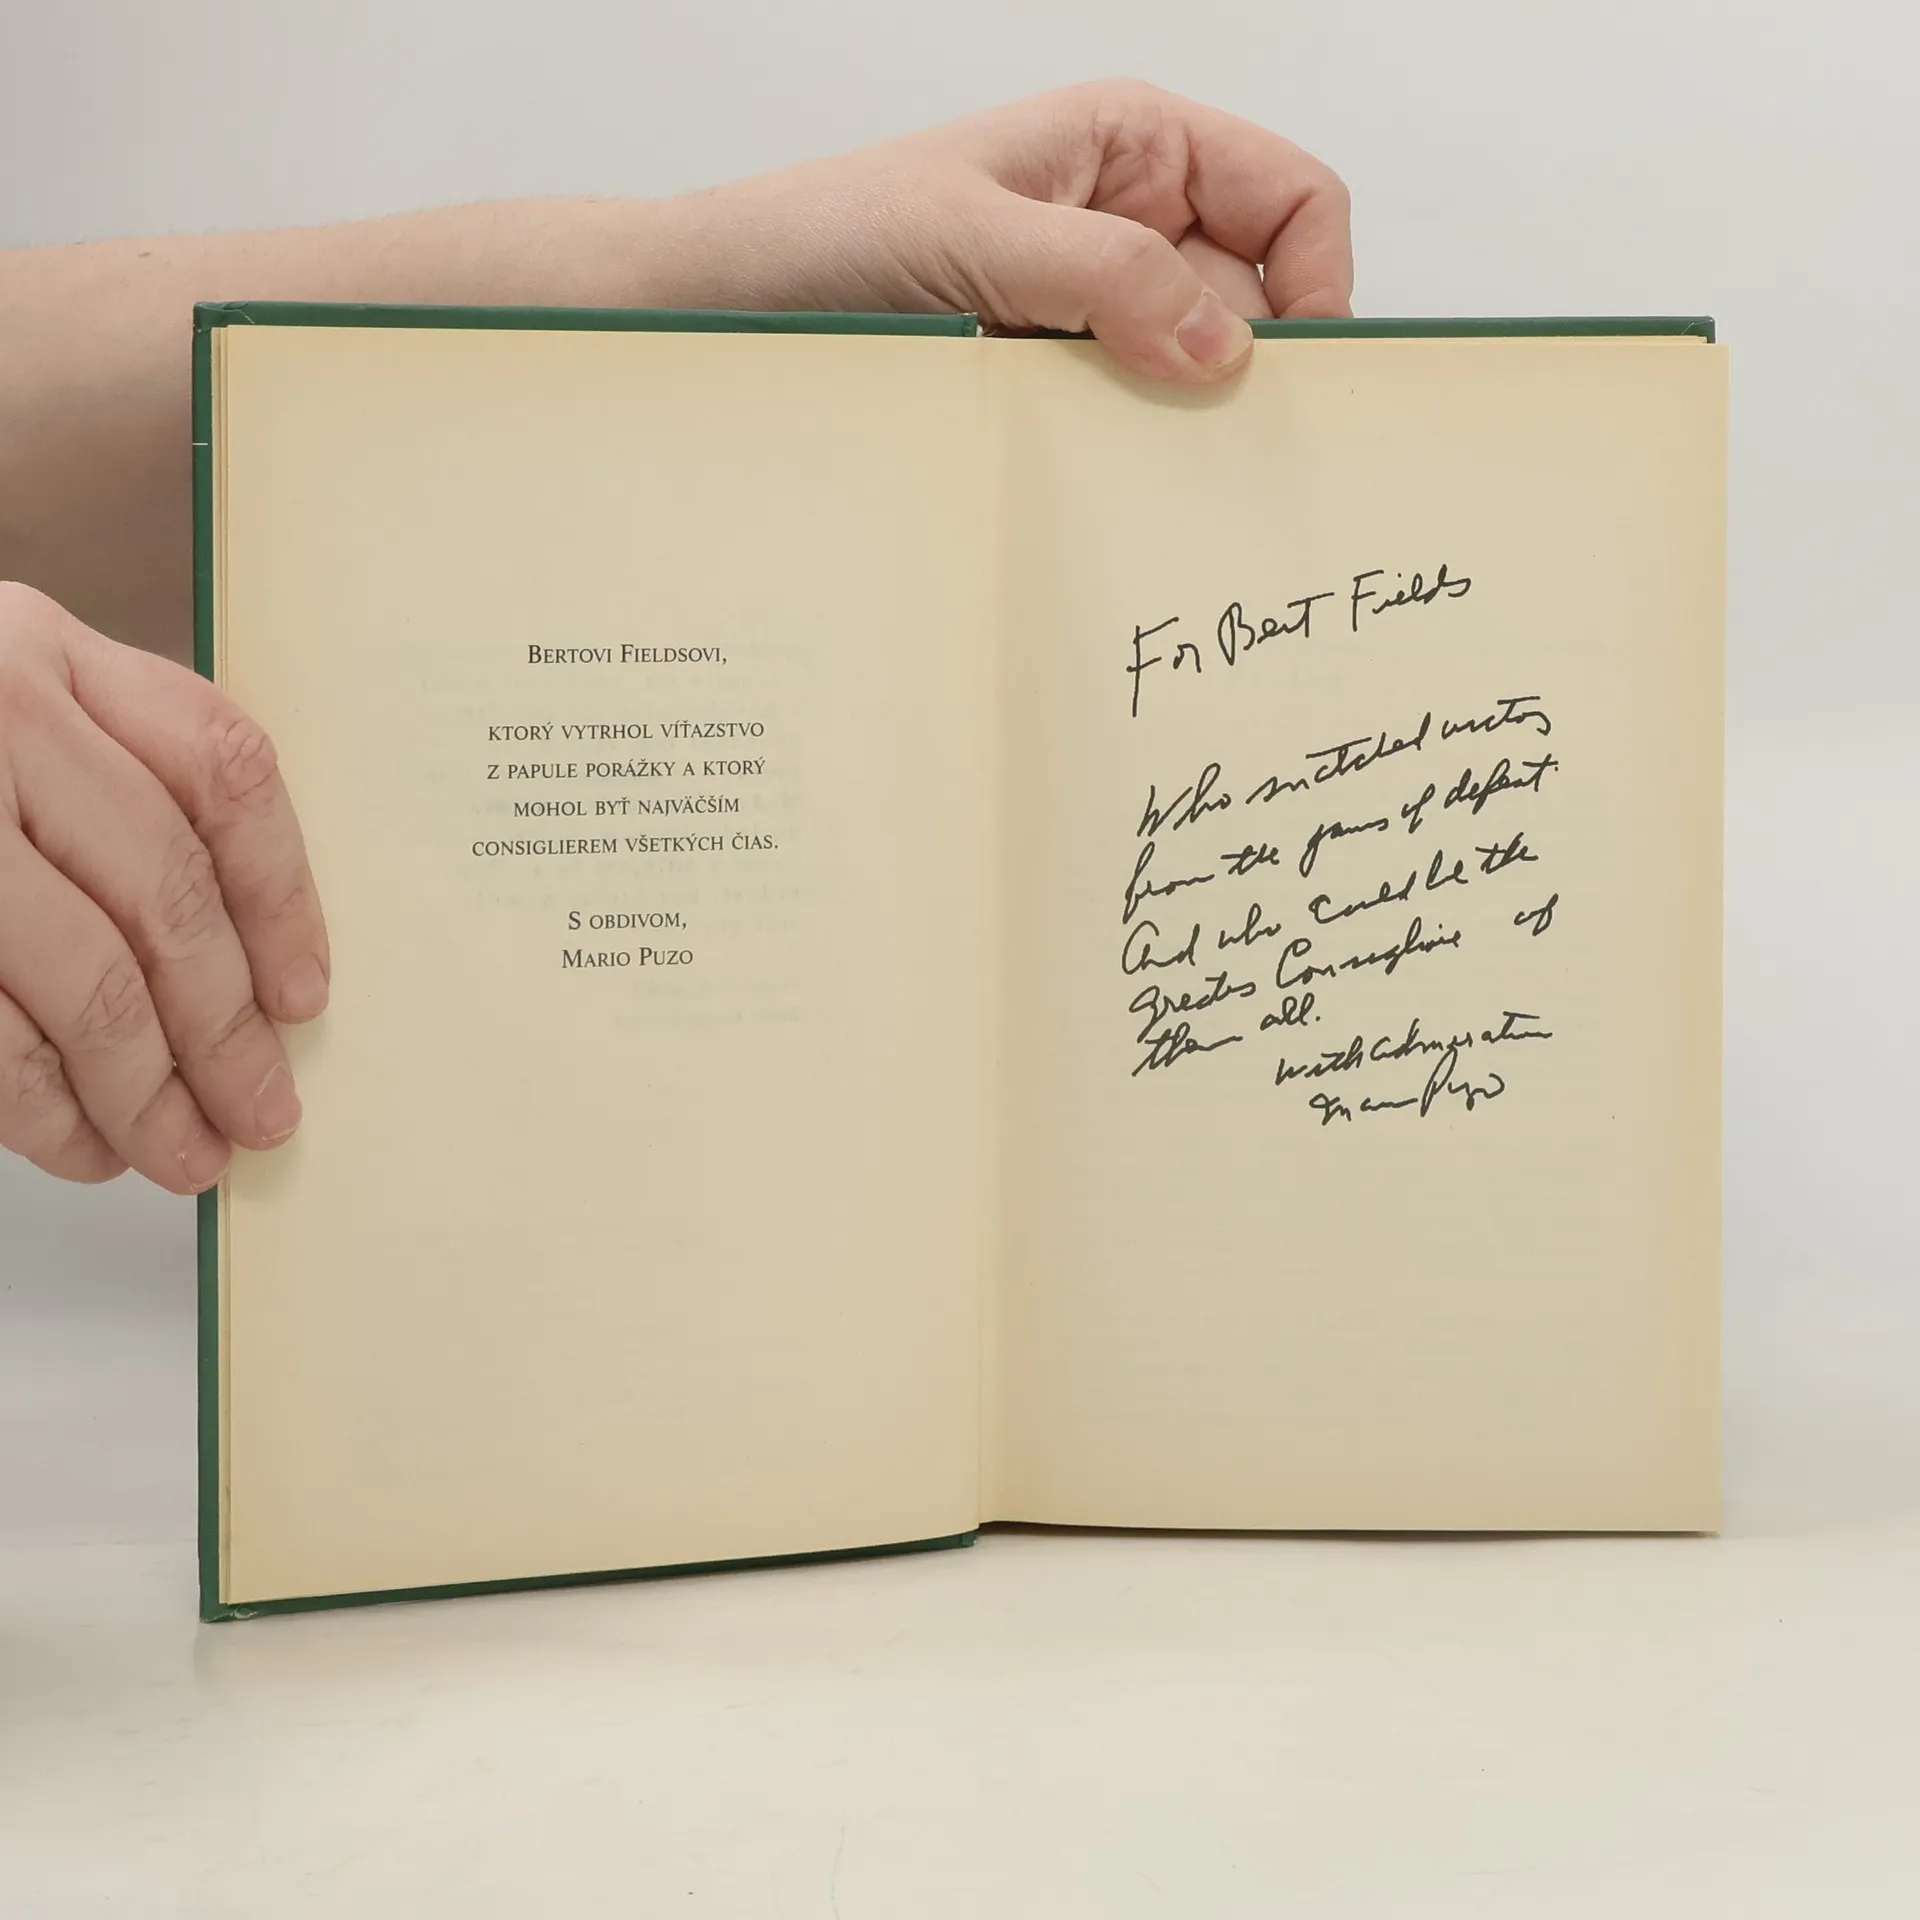 BERTOVI FIELDSOVI,
KTORÝ VYTRHOL VÍŤAZSTVO
Z PAPULE PORÁŽKY A KTORÝ
MOHOL BYŤ NAJVÄČŠÍM
CONSIGLIEREM VŠETKÝCH ČIAS.
S OBDIVOM,
MARIO PUZO
For Bert Fields
Who snatched victory
from the jaws of defeat.
And who could be the
greatest Consigliore of
them all.
with admiration
Mario Puzo